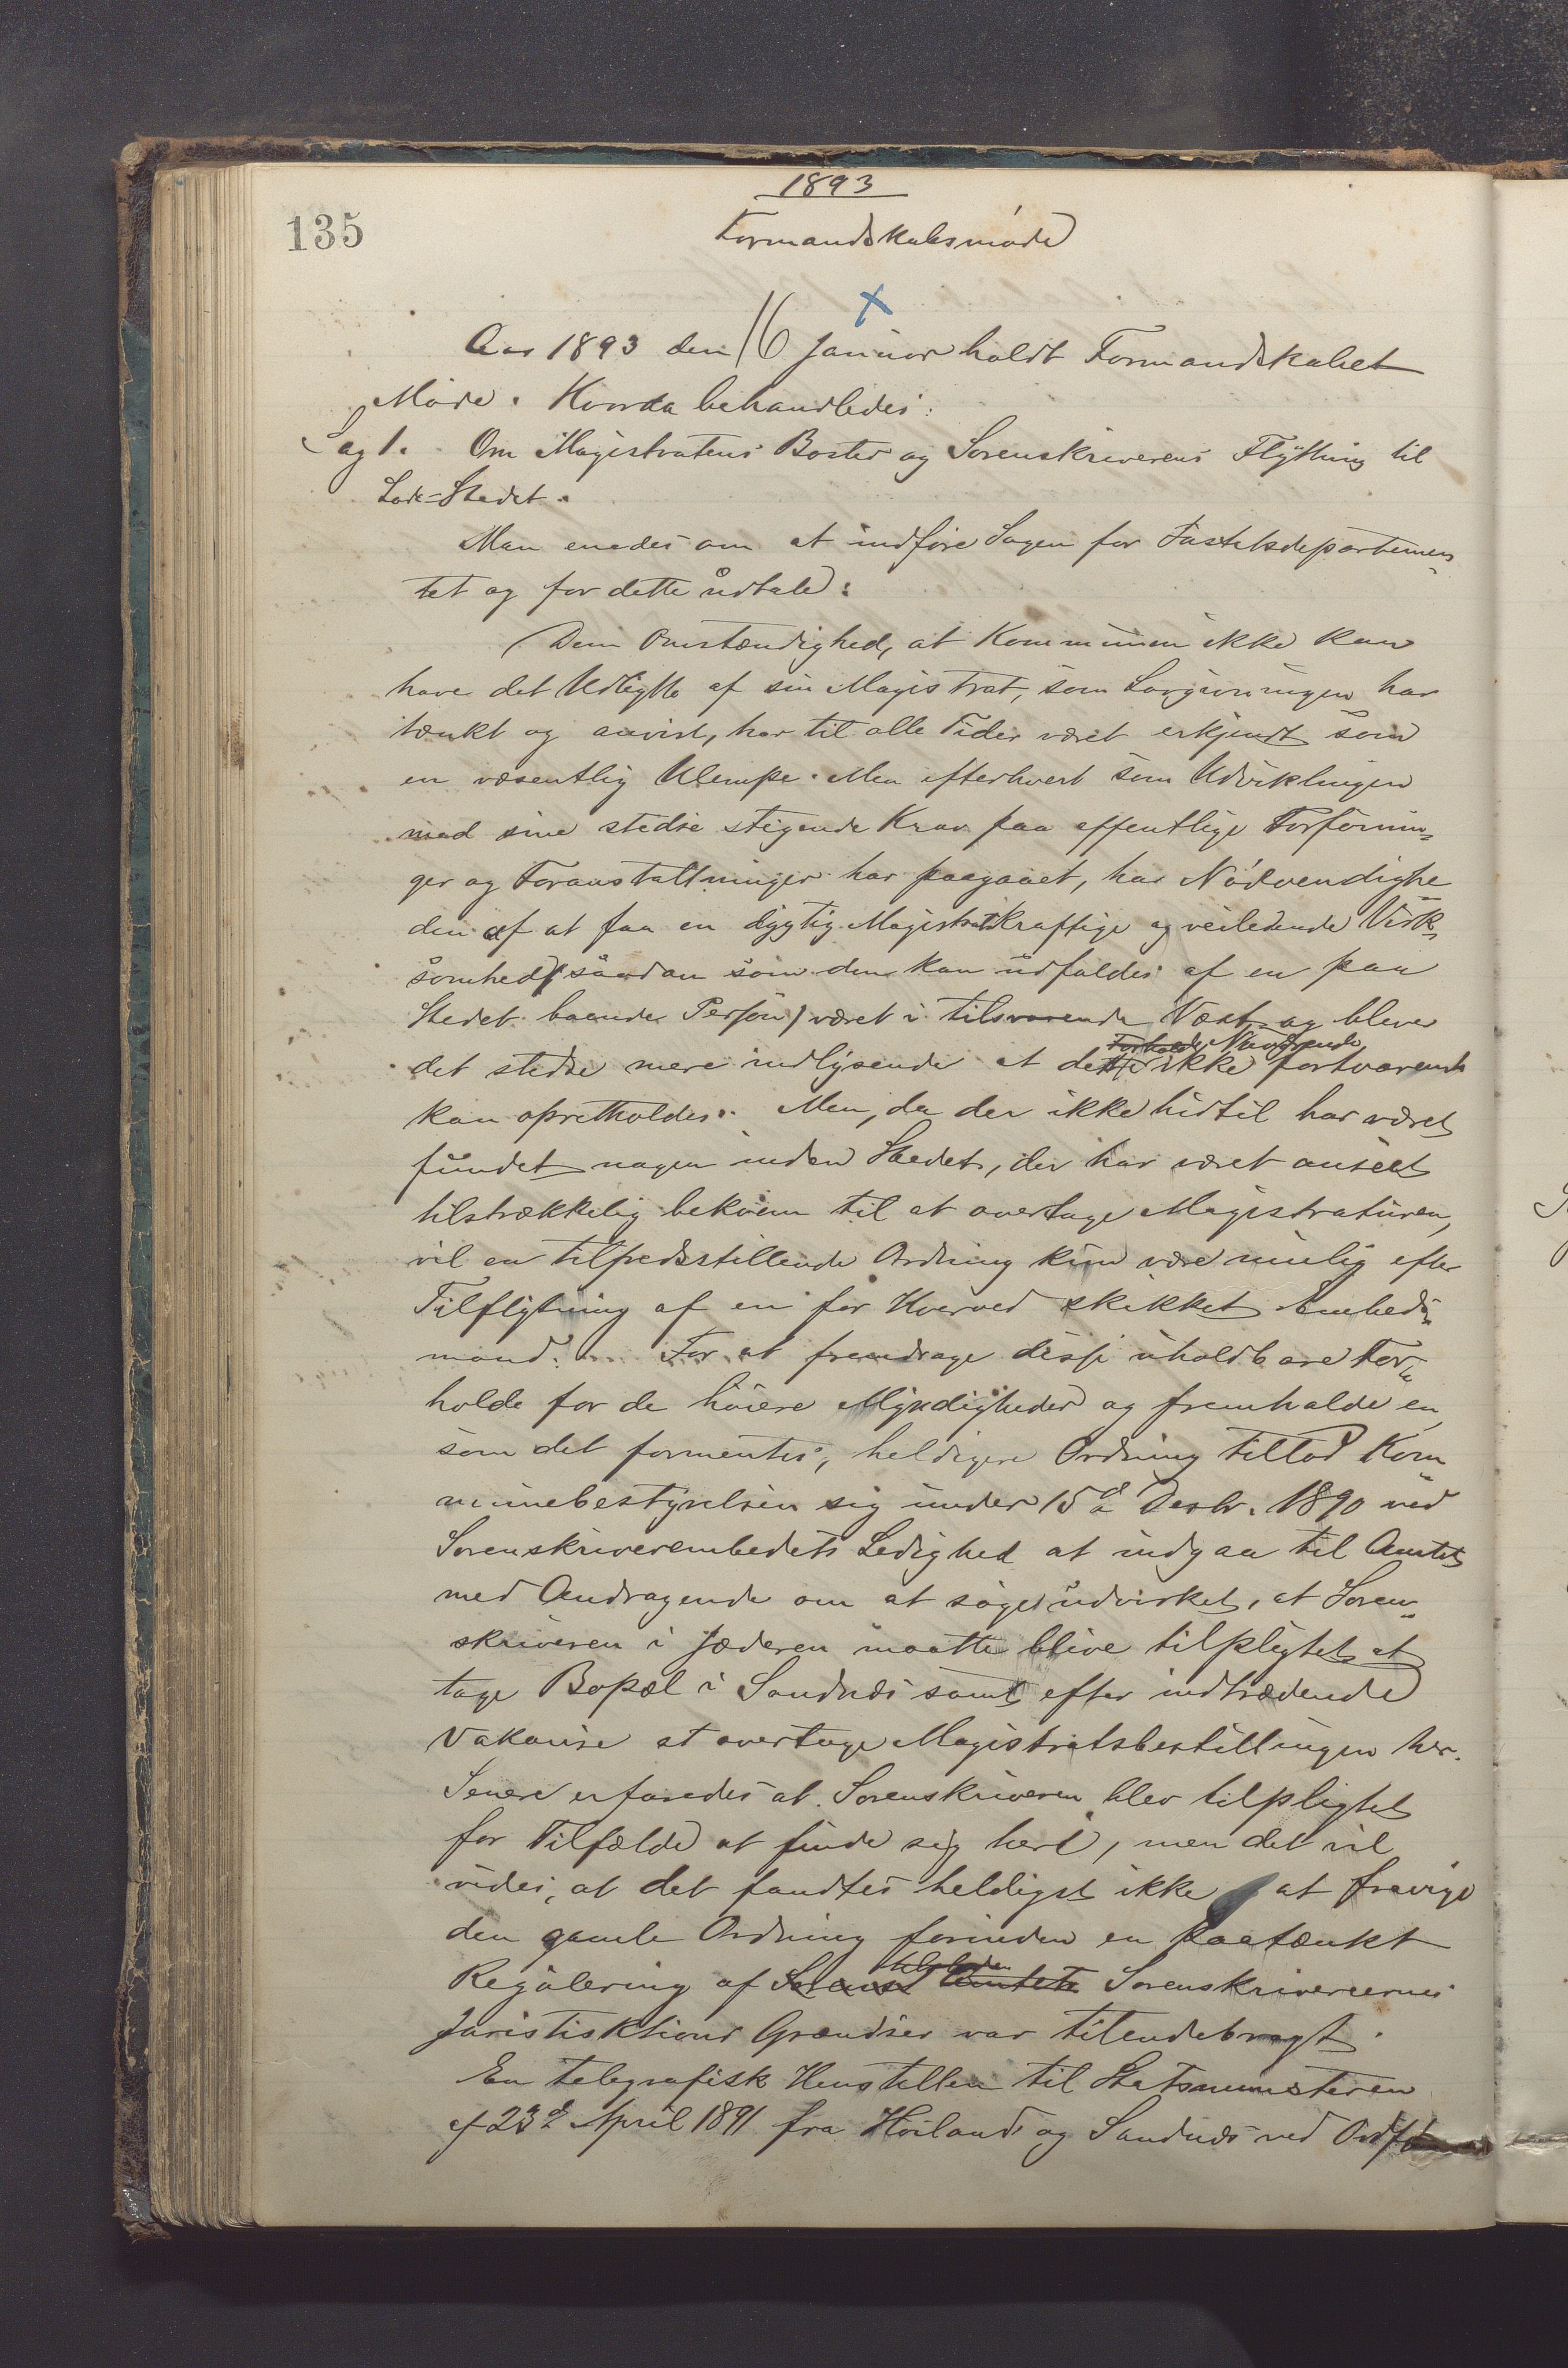 1893
135
Formandskabsmøde
x
Aar 1893 den 16 Januar holdt Formandskabet
Møde. Hvorda behandledes:
Sag 1. Om Magistratens Bosted og Sorenskriverens Flytning til
Lade-Stedet.
Man enedes om at indføre Sagen for Justitsdepartemen-
tet og for dette udtale:
Den Omstændighed, at Kommunen ikke kan
have det Udbytte af sin Magistrat, som Lovgivningen har
tænkt og anvist, har til alle Tider været erkjendt som
en væsentlig Ulempe. Men efterhvert som Udviklingen
med sine stedse stigende Krav paa offentlige Forførnin-
ger og Foranstaltninger har paagaaet, har Nødvendighe-
den af at faa en dygtig Magistrats kraftige og veiledende Virk-
somhed (saadan som den kan udfoldes af en paa
Stedet boende Person) været i tilsvarende Vext og bliver
Forhold Nuværende
det stedse mere indlysende at dette ikke fortvarende
kan opretholdes. Men, da der ikke hidtil har været
fundet nogen inden Stedet, der har været anseet
tilstrækkelig bekvem til at overtage Magistraturen,
vil en tilfredsstillende Ordning kun være mulig efter
Tilflytning af en for Hvervet skikket Embeds-
mand. For at fremdrage disse uholdbare For-
holde for de høiere Myndigheder og fremholde en,
som det formentes, heldigere Ordning tillod Kom-
munebestyrelsen sig under 15d Decbr. 1890 ved
Sorenskriverembedets Ledighed at indgaa til Amtet
med Andragende om at søges udvirket, at Soren-
skriveren i Jæderen maatte blive tilpligtet at
tage Bopæl i Sandnæs samt efter indtrædende
Vakanse at overtage Magistratsbestillingen her.
Senere erfaredes at Sorenskriveren blev tilpligtet
for Tilfælde at finde sig heri, men det vil
vides, at det fandtes heldigst ikke at fravige
den gamle Ordning forinden en paatænkt
Regulering af Sorensk Amtets Sorenskriveriernes
Jurisdiktions Grændser var tilendebragt.
En telegrafisk Henstillen til Statsministeren
af 23d April 1891 fra Høiland og Sandnæs ved Ordf